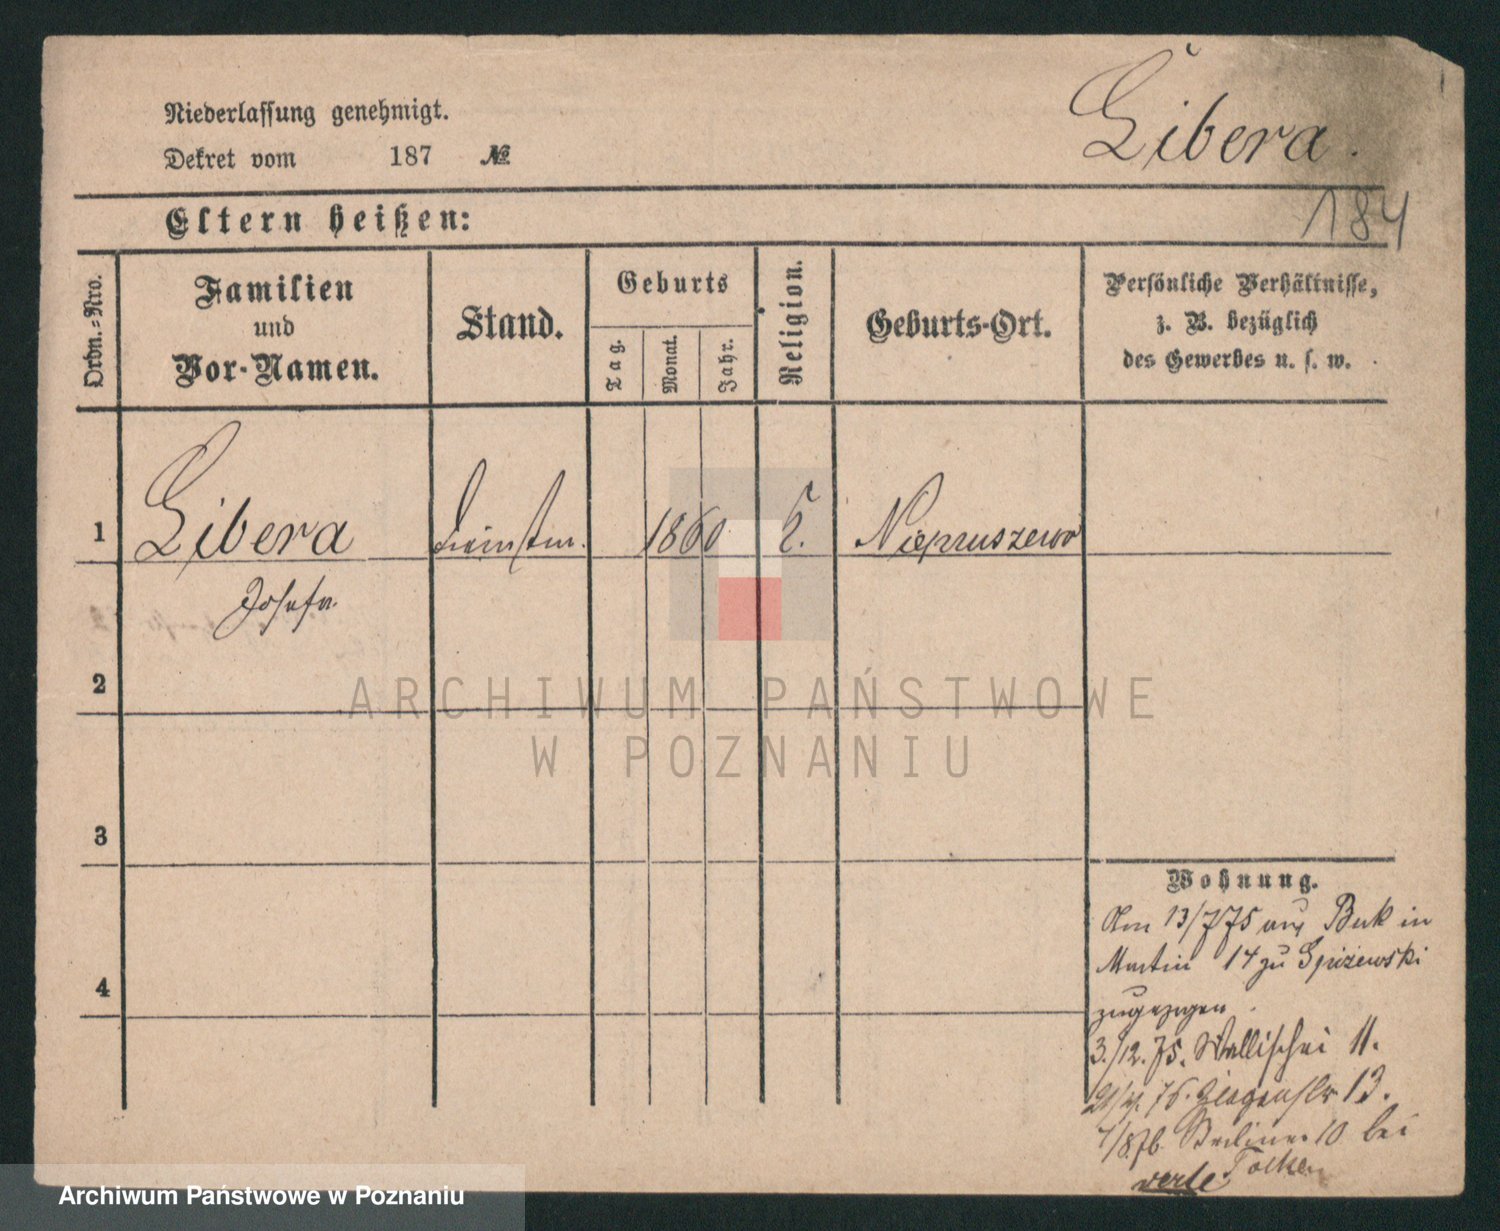 Niederlassung genehmigt.
Dekret vom 187 №
Libera.
184
Eltern heißen:
Ordn.=Nro.
Familien
und
Vor-Namen.
Stand.
Geburts
Tag.
Monat.
Jahr.
Religion.
Geburts-Ort.
Persönliche Verhältnisse,
z. B. bezüglich
des Gewerbes u. s. w.
1 Libera 1860 k. Niepruszewo
Josefa
2
3
4
Wohnung.
Am 13/7 75 aus Buk in
Martin 14 zu
zugezogen
3./12. 75. Wallischei 11.
76. Ziegenstr 13.
1/8. 76. Berliner 10 bei
verte
ARCHIWUM PAŃSTWOWE
W POZNANIU
Archiwum Państwowe w Poznaniu